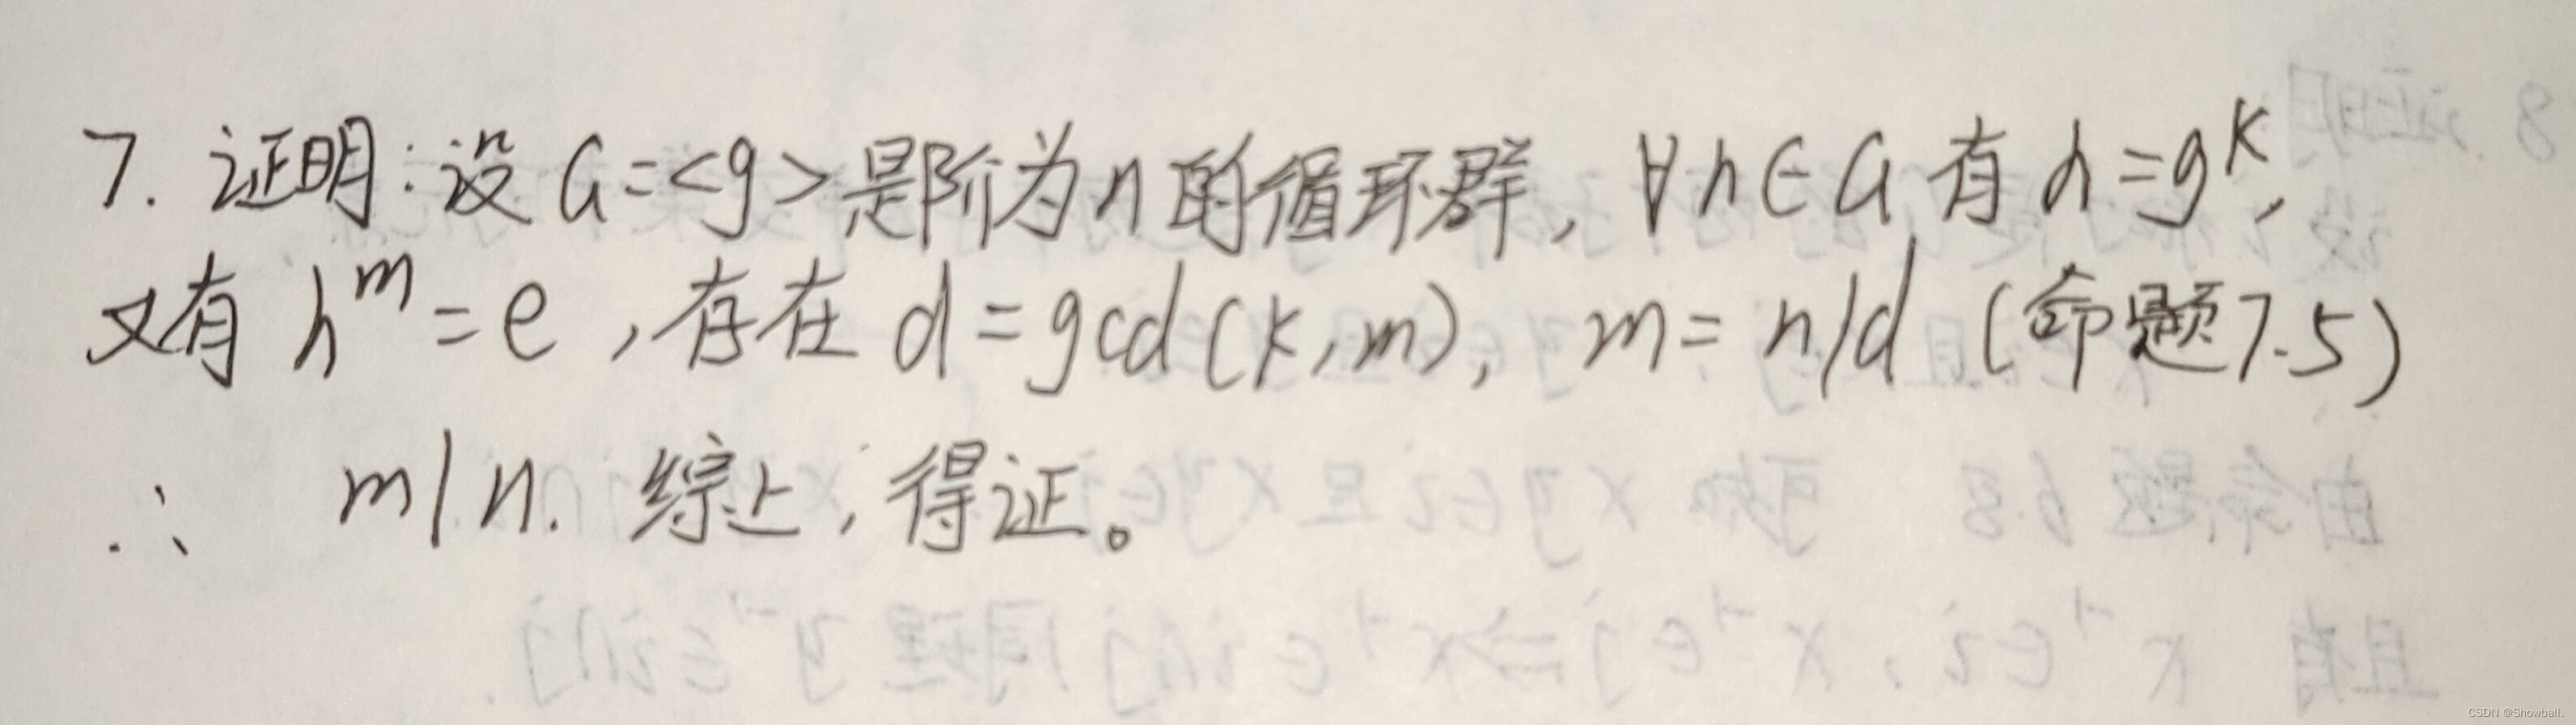 7. 证明:设 G=<g>是阶为n的循环群, ∀h∈G 有 h=g^k,
又有 h^m=e ,存在 d=gcd(k,m), m=n/d (命题7.5)
∴ m|n. 综上,得证。
CSDN @Showball.